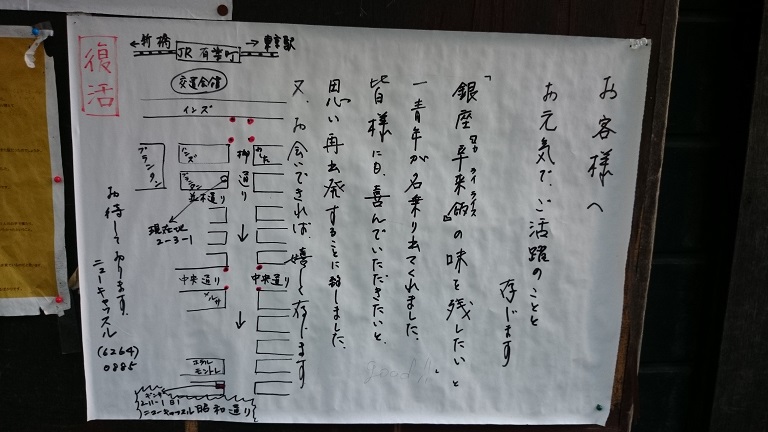 お客様へ
お元気で、ご活躍のことと
存じます
「銀座辛来飯」の味を残したいと
カライライス
一青年が名乗り出てくれました、
皆様に、喜んでいただきたいと、
思い再出発することに致しました、
又、お会いできれば、嬉しく存じます
good!!
復活
←新橋
JR有楽町
→東京駅
交通会館
インズ
プランタン
柳通り
並木通り
現在地
2-3-1
中央通り
中央通り
メルサ
ホテル
モントレ
ギンザ
2-11-1 B1
ニューキャッスル
昭和通り
お待しております、
ニューキャッスル
(6264)
0885